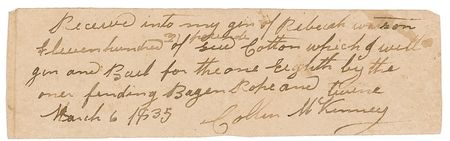 Received into my gin of Rebecah watson
Elevenhundred 31 pounds of Seed Cotton which I will
gin and Bail for the one Eighth by the
oner finding Bagen Rope and twine
March 6 1835 Collin McKinney